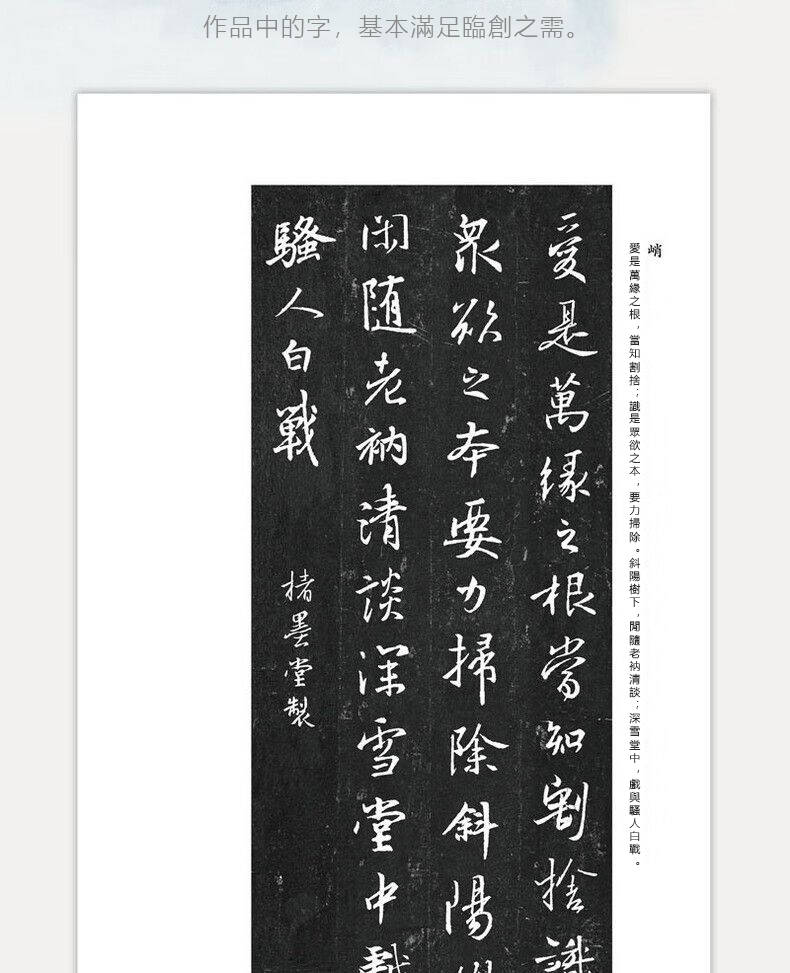 作品中的字，基本滿足臨創之需。
峭
愛是萬緣之根，當知割捨；識是眾欲之本，要力掃除。斜陽樹下，閒隨老衲清談；深雪堂中，戲與騷人白戰。
愛是萬緣之根當知割捨識
眾欲之本要力掃除斜陽樹
閑随老衲清談深雪堂中戲
騷人白戰
楮墨堂製